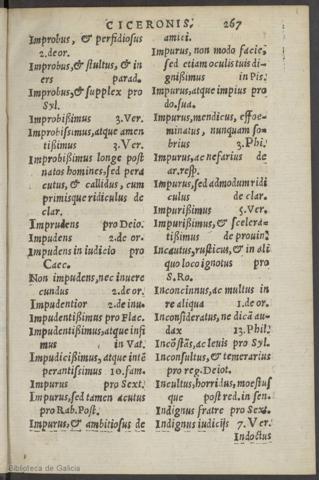 CICERONIS. 267
Improbus, & perfidiosus
2.de or.
Improbus,& stultus, & in
ers parad.
Improbus,& supplex pro
Syl.
Improbißimus 3.Ver.
Improbißimus,atque amen
tißimus 3.Ver.
Improbißimus longe post
natos homines,sed pera
cutus, & callidus, cum
primisque ridiculus de
clar.
Imprudens pro Deio.
Impudens 2.de or.
Impudens in iudicio pro
Caec.
Non impudens,nec inuere
cundus 2.de or.
Impudentior 2.de inu.
Impudentißimus pro Flac.
Impudentißimus,atque infi
mus in Vat.
Impudicißimus,atque intē
perantissimus 10.fam.
Impurus pro Sext.
Impurus,sed tamen acutus
pro Rab.Post.
Impurus,& ambitiosus de
amici.
Impurus, non modo facie,
sed etiam oculis tuis di-
gnißimus in Pis.
Impurus,atque impius pro
do.sua.
Impurus,mendicus, effoe-
minatus, nunquam so-
brius 3.Phi.
Impurus,ac nefarius de
ar.resp.
Impurus,sed admodum ridi
culus de clar.
Impurißimus 5.Ver.
Impurißimus,& scelera-
tißimus de prouin.
Incautus,rusticus,& in ali
quo loco ignotus pro
S.Ro.
Inconcinnus,ac multus in
re aliqua 1.de or.
Inconsideratus,ne dicā au-
dax 13.Phil.
Incōstās,ac leuis pro Syl.
Inconsultus,& temerarius
pro reg.Deiot.
Incultus,horridus,moestus
que post red.in sen.
Indignus fratre pro Sext.
Indignus iudicijs 7.Ver.
Indoctus
Biblioteca de Galicia